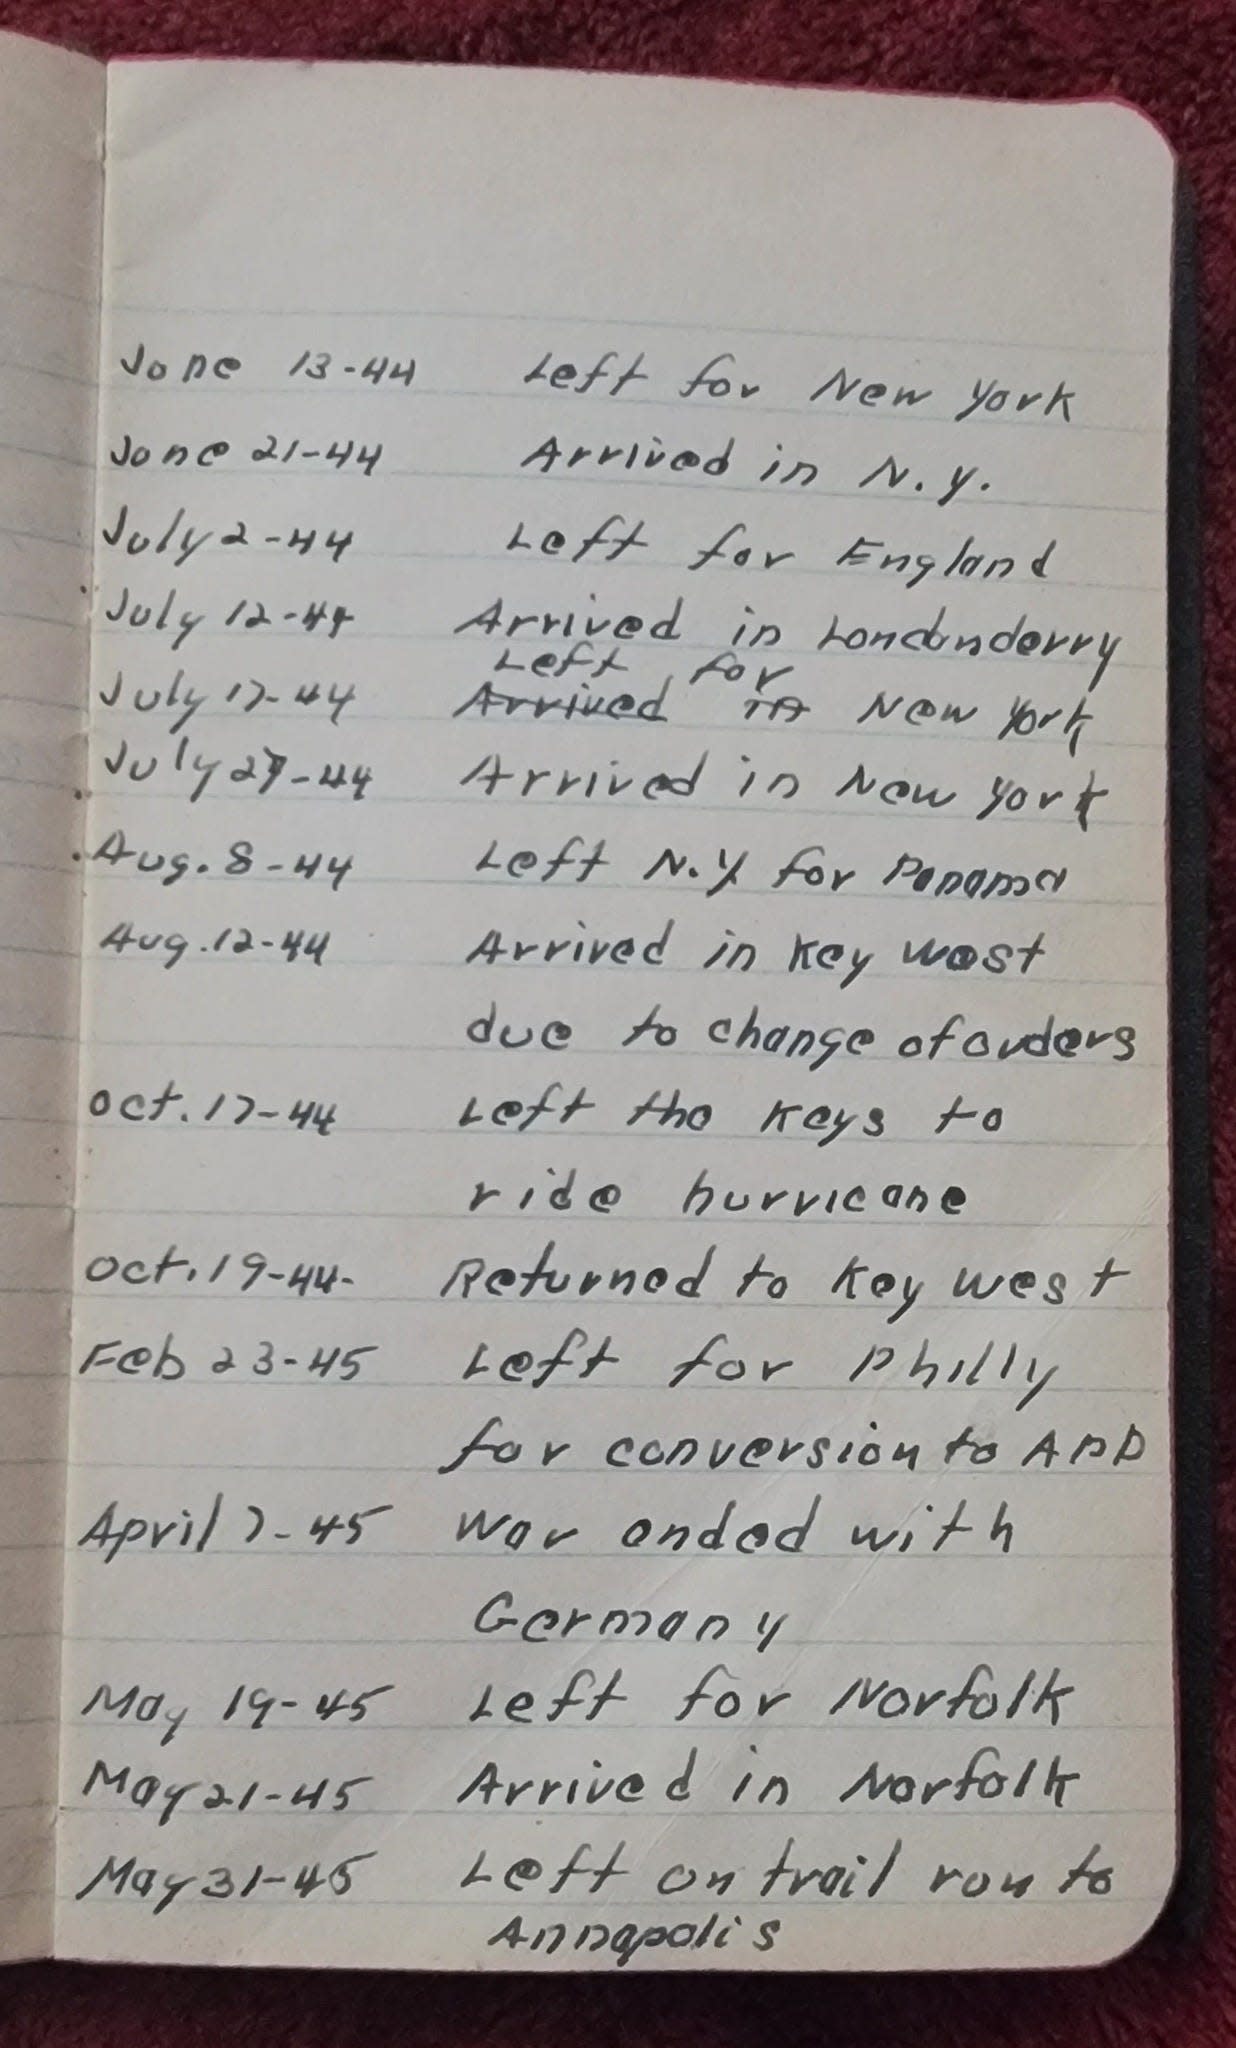 June 13-44 Left for New York
June 21-44 Arrived in N.Y.
July 2-44 Left for England
July 12-44 Arrived in Londonderry
Left for
July 17-44 Arrived in New York
July 27-44 Arrived in New York
Aug. 8-44 Left N.Y for Panama
Aug. 12-44 Arrived in Key West
due to change of orders
Oct. 17-44 Left the Keys to
ride hurricane
Oct. 19-44- Returned to Key West
Feb 23-45 Left for Philly
for conversion to APD
April 7-45 War ended with
Germany
May 19-45 Left for Norfolk
May 21-45 Arrived in Norfolk
May 31-45 Left on trail run to
Annapolis